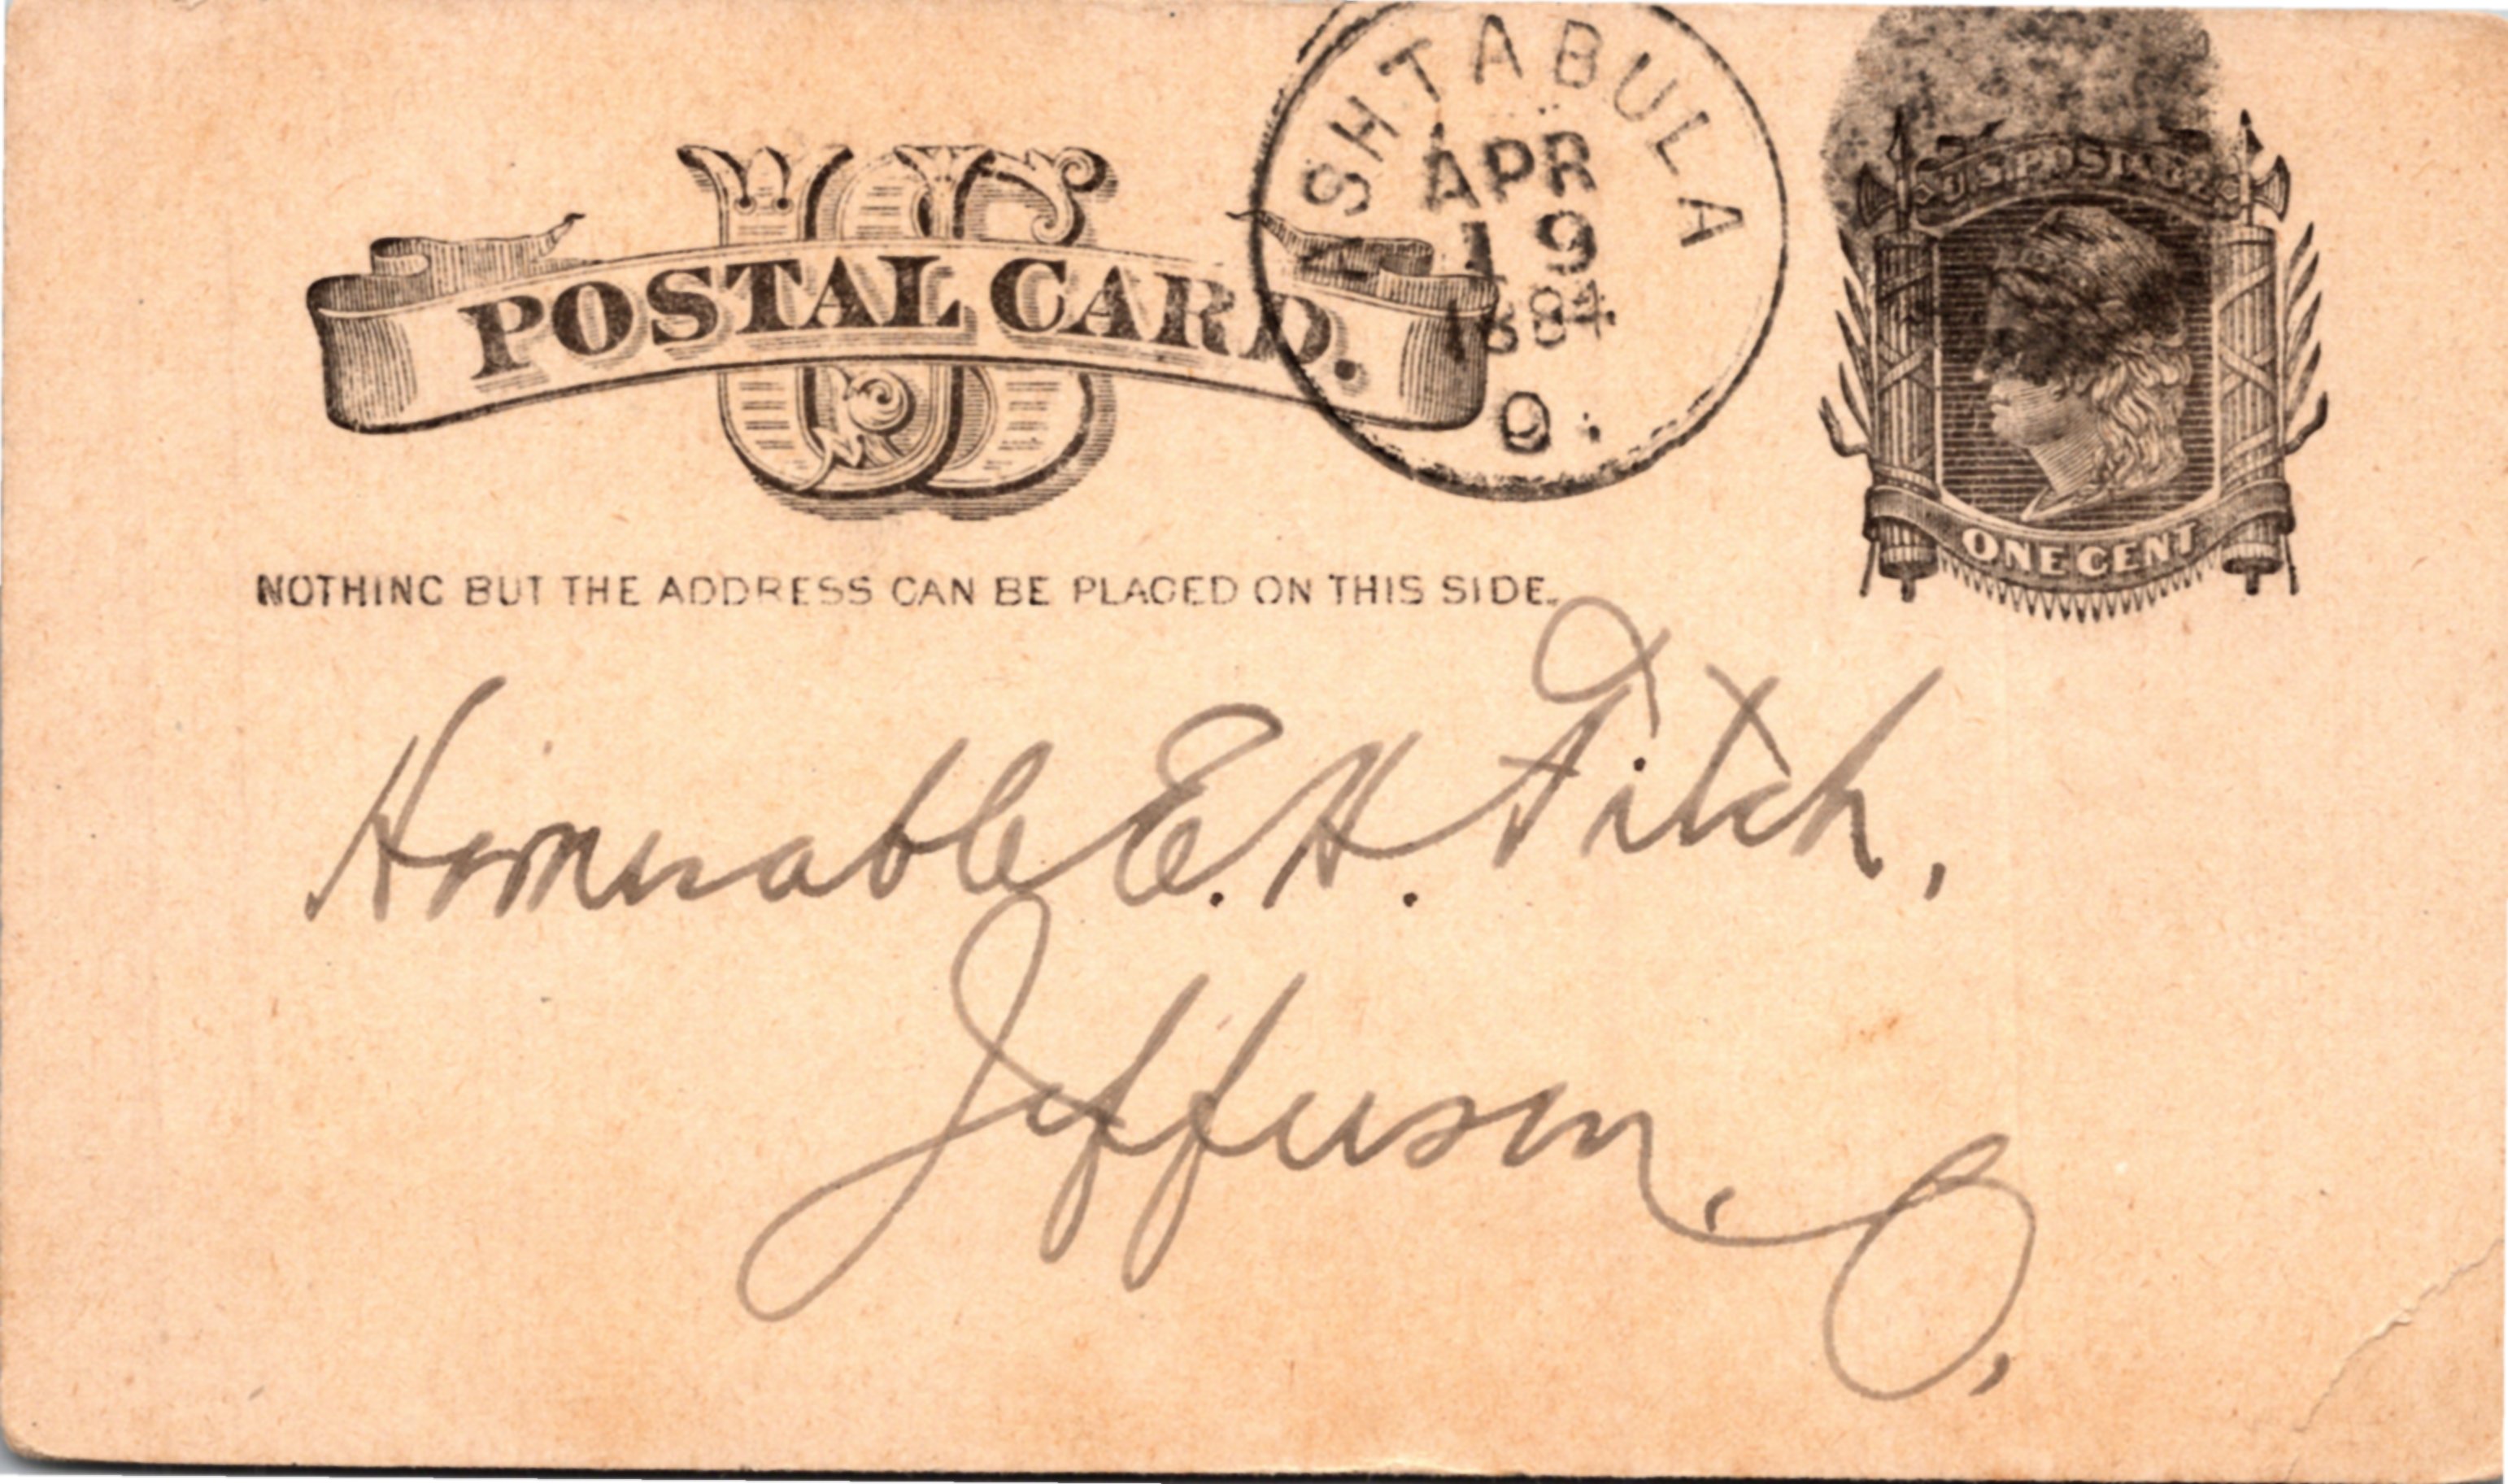 US
POSTAL CARD.
ASHTABULA
APR
19
1884
9
U.S. POSTAGE
ONE CENT
NOTHING BUT THE ADDRESS CAN BE PLACED ON THIS SIDE.
Honorable E. H. Fitch,
Jefferson, O,